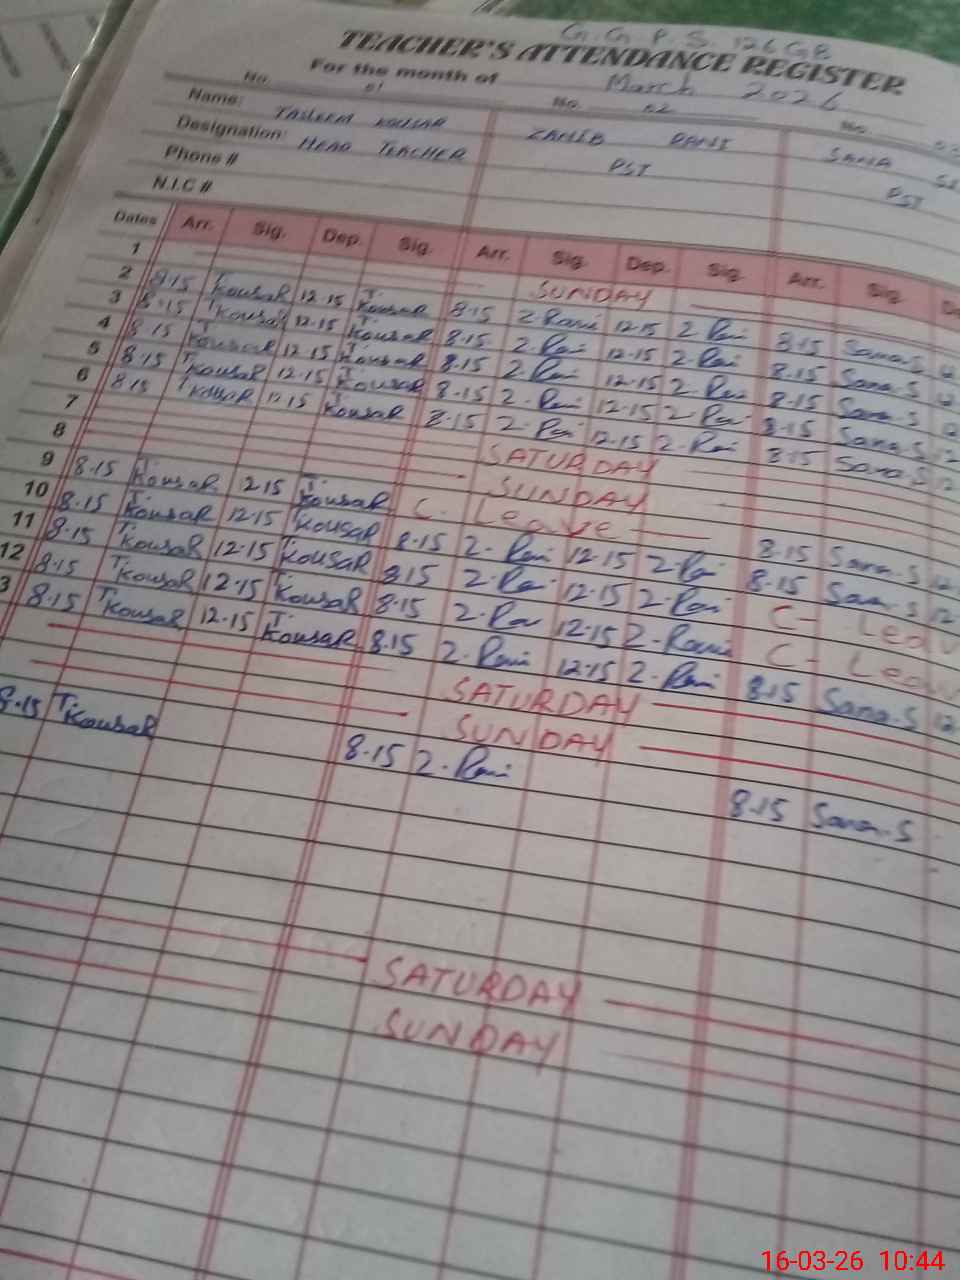 G.G.P.S. 126 GB
TEACHER'S ATTENDANCE REGISTER
For the month of March 2026
No. 01 No. 02 No. 03
Name: TASLEEM KOUSAR ZANIB RANI SANA
Designation: HEAD TEACHER PST PST
Phone #
N.I.C #
Dates Arr. Sig. Dep. Sig. Arr. Sig. Dep. Sig. Arr. Sig.
1 SUNDAY
2 8.15 T.Kousar 12.15 T.Kousar 8.15 Z.Rani 12.15 Z.Rani 8.15 Sana.S
3 8.15 T.Kousar 12.15 T.Kousar 8.15 Z.Rani 12.15 Z.Rani 8.15 Sana.S
4 8.15 T.Kousar 12.15 T.Kousar 8.15 Z.Rani 12.15 Z.Rani 8.15 Sana.S
5 8.15 T.Kousar 12.15 T.Kousar 8.15 Z.Rani 12.15 Z.Rani 8.15 Sana.S 12
6 8.15 T.Kousar 12.15 T.Kousar 8.15 Z.Rani 12.15 Z.Rani 8.15 Sana.S 12
7 SATURDAY
8 SUNDAY
9 8.15 T.Kousar 12.15 T.Kousar C. Leave 8.15 Sana.S 12
10 8.15 T.Kousar 12.15 T.Kousar 8.15 Z.Rani 12.15 Z.Rani 8.15 Sana.S 12
11 8.15 T.Kousar 12.15 T.Kousar 8.15 Z.Rani 12.15 Z.Rani C- Leav
12 8.15 T.Kousar 12.15 T.Kousar 8.15 Z.Rani 12.15 Z.Rani C- Leav
3 8.15 T.Kousar 12.15 T.Kousar 8.15 Z.Rani 12.15 Z.Rani 8.15 Sana.S 12
SATURDAY
SUNDAY
8.15 T.Kousar 8.15 Z.Rani 8.15 Sana.S
SATURDAY
SUNDAY
16-03-26 10:44